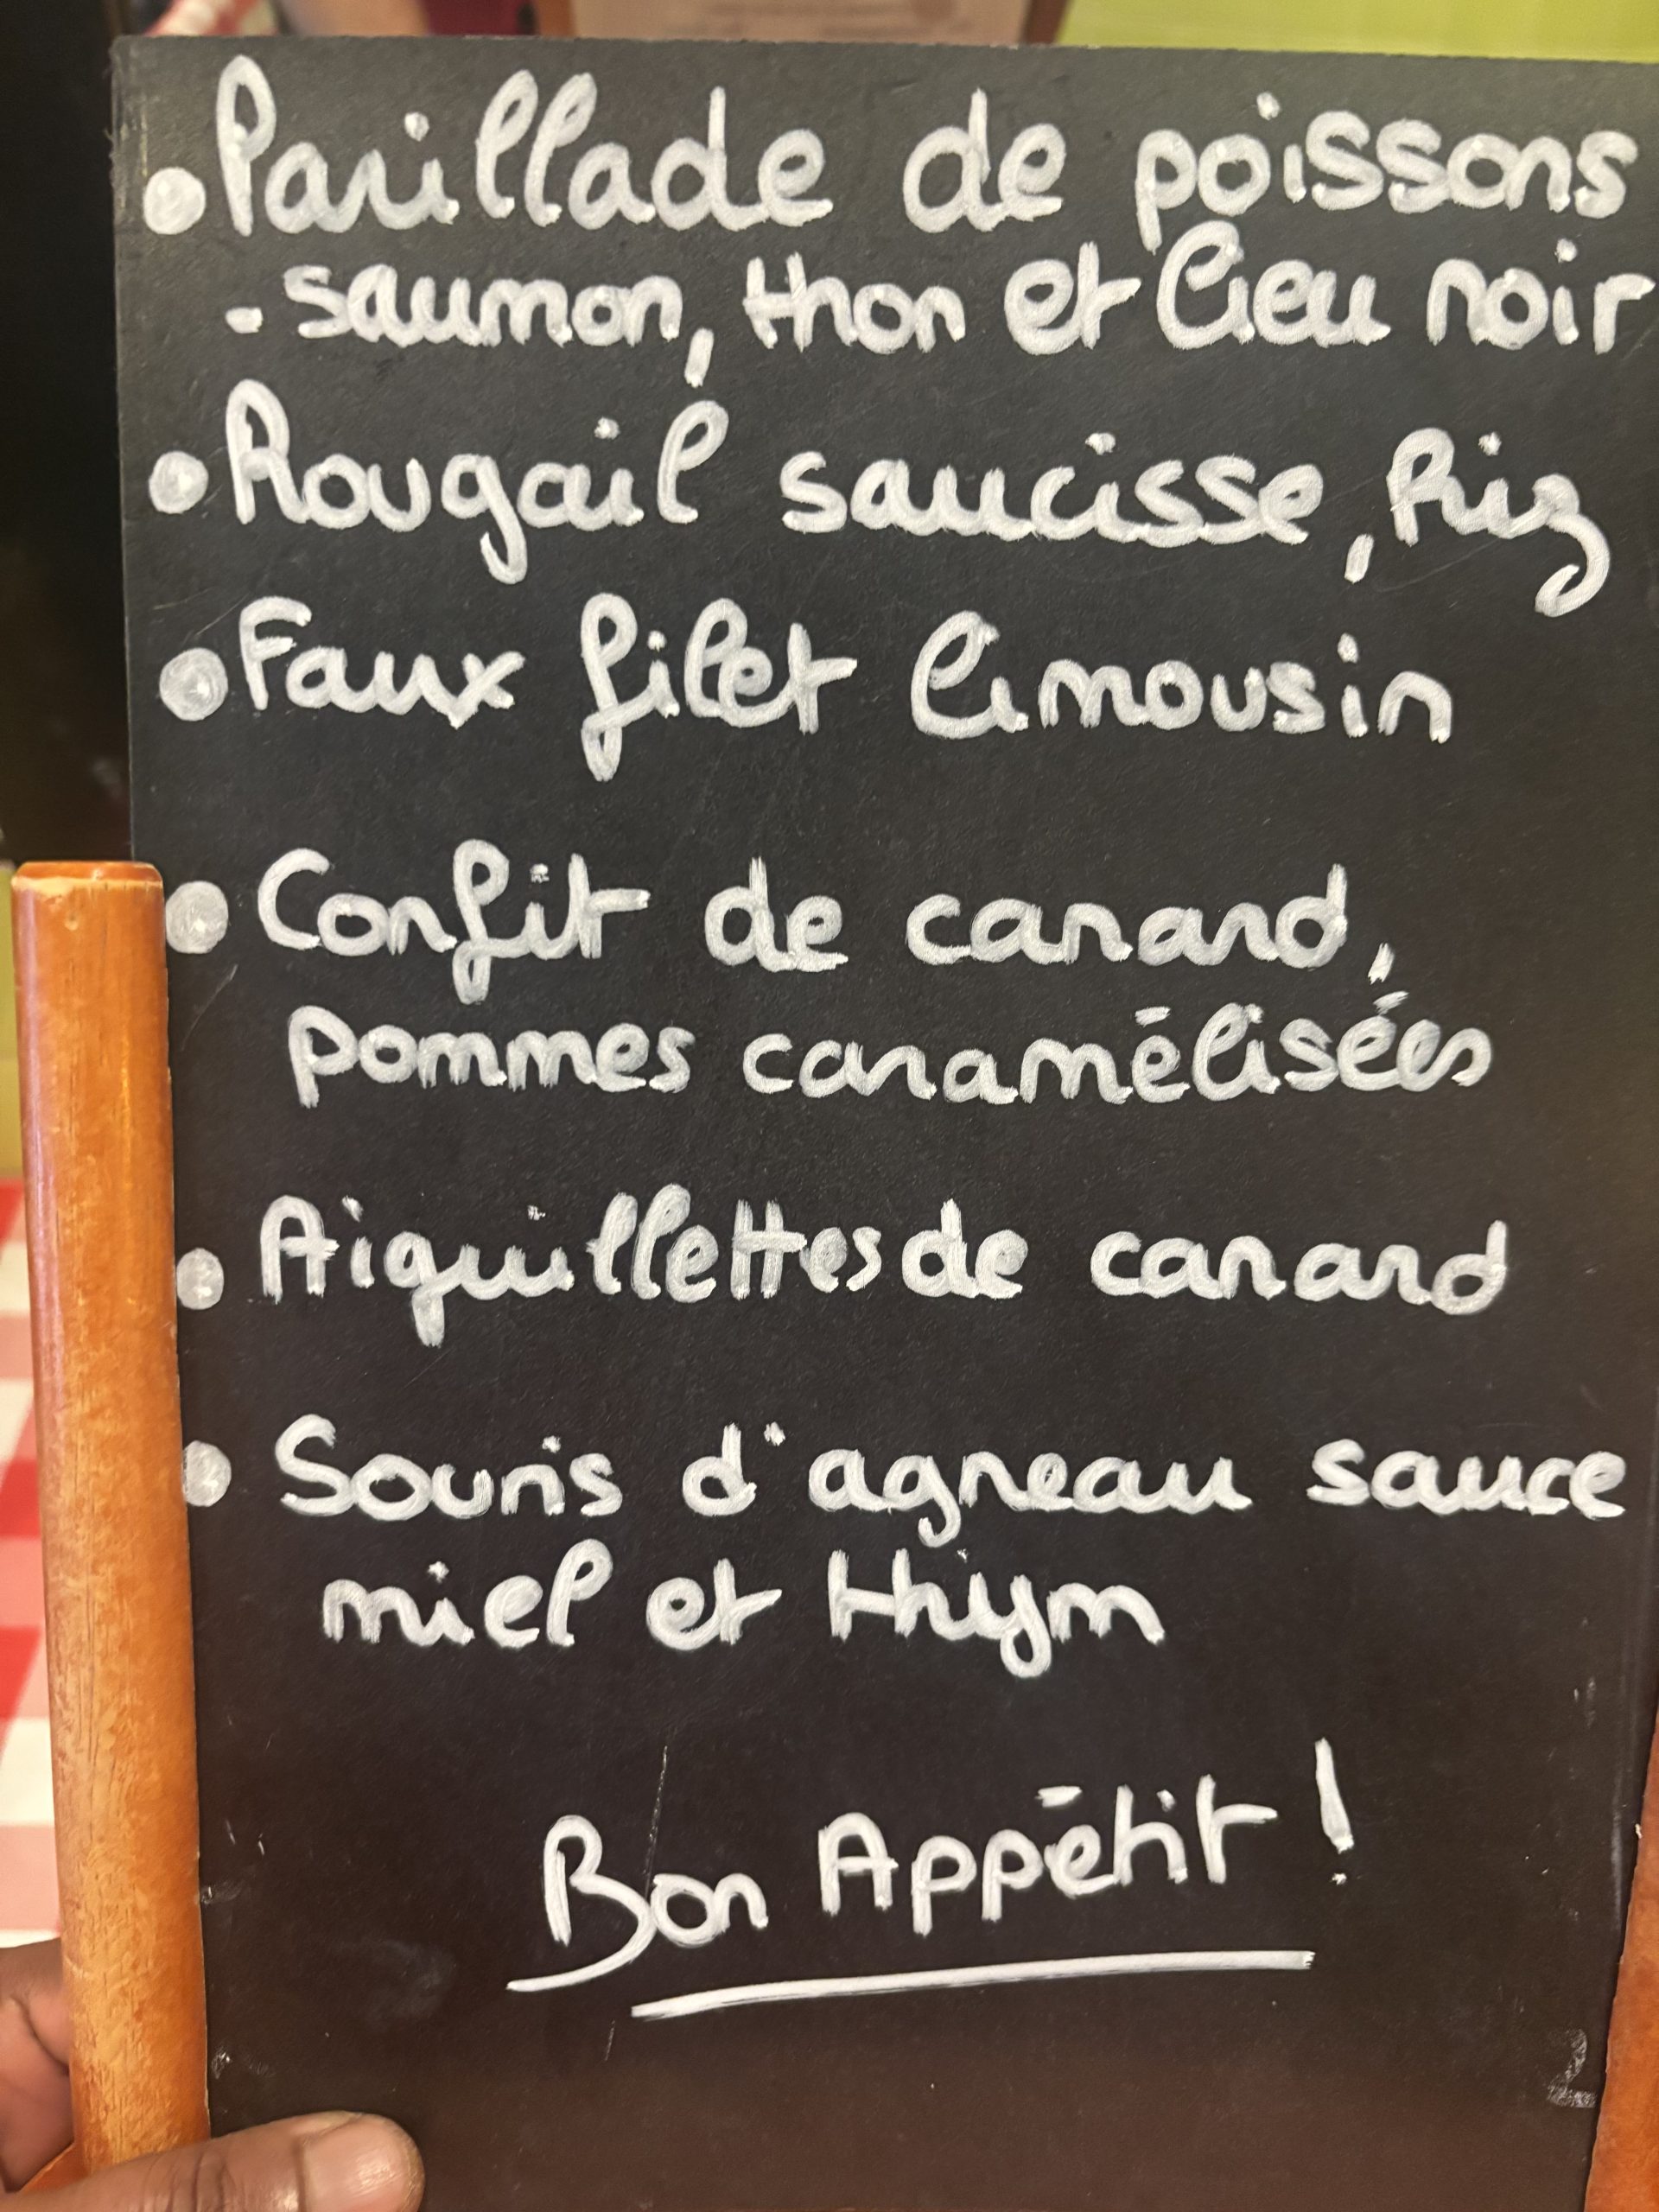 • Parillade de poissons
- saumon, thon et lieu noir
• Rougail saucisse, Riz
• Faux filet limousin
• Confit de canard,
pommes caramélisées
• Aiguillettes de canard
• Souris d'agneau sauce
miel et thym
Bon Appétit !
2